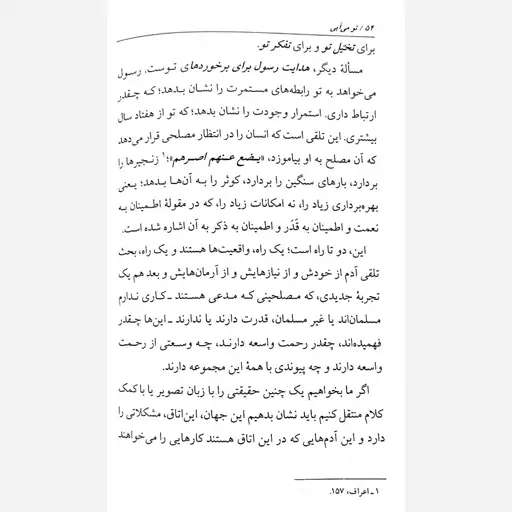 ۵۴ / تو می‌آیی
برای تخیّل تو و برای تفکر تو.
مسألهٔ دیگر، هدایت رسول برای برخوردهای توست. رسول
می‌خواهد به تو رابطه‌های مستمرت را نشان بدهد؛ که چقدر
ارتباط داری. استمرار وجودت را نشان بدهد؛ که تو از هفتاد سال
بیشتری. این تلقی است که انسان را در انتظار مصلحی قرار می‌دهد
که آن مصلح به او بیاموزد، «یـضع عـنهم اصـرهم»؛۱ زنجیرها را
بردارد، بارهای سنگین را بردارد، کوثر را به آن‌ها بدهد؛ یعنی
بهره‌برداری زیاد را، نه امکانات زیاد را، که در مقولهٔ اطمینان به
نعمت و اطمینان به قَدَر و اطمینان به ذکر به آن اشاره شده است.
این، دو تا راه است؛ یک راه، واقعیت‌ها هستند و یک راه، بحث
تلقی آدم از خودش و از نیازهایش و از آرمان‌هایش و بعد هم یک
تجربهٔ جدیدی، که مـصلحینی کـه مـدعی هستند ـ کاری ندارم
مسلمان‌اند یا غیر مسلمان، قدرت دارند یا ندارند ـ این‌ها چقدر
فهمیده‌اند، چقدر رحمت واسعه دارنـد، چـه وسعتی از رحمت
واسعه دارند و چه پیوندی با همهٔ این مجموعه دارند.
اگر ما بخواهیم یک چنین حقیقتی را با زبان تصویر یا با کمک
کلام منتقل کنیم باید نشان بدهیم این جهان، این اتاق، مشکلاتی را
دارد و این آدم‌هایی که در این اتاق هستند کارهایی را می‌خواهند
۱ ـ اعراف، ۱۵۷.